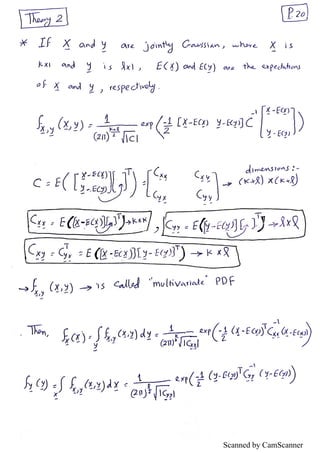 Theory 2
P.20
* If X and y are jointly Gaussian, where X is
kx1 and y is lx1, E(X) and E(y) are the expectations
of X and y, respectively.
f_{x,y} (X,y) = 1 / ((2π)^{(k+l)/2} √|C|) exp(-1/2 [X-E(X) y-E(y)] C^{-1} [X-E(X) y-E(y)]
C = E([X-E(X) y-E(y)] [ ]^T) = [C_{xx} C_{xy} C_{yx} C_{yy}] → dimensions:- (k+l) x (k+l)
C_{xx} = E([X-E(X)][ ]^T) → kxk , C_{yy} = E([y-E(y)][ ]^T) → lxl
C_{xy} = C_{yx}^T = E([X-E(X)][y-E(y)]^T) → k x l
→ f_{x,y} (X,y) → is called "multivariate" PDF
. Then, f_x(X) = ∫_y f_{x,y}(X,y) dy = 1 / ((2π)^{k/2} √|C_{xx}|) exp(-1/2 (X-E(X))^T C_{xx}^{-1} (X-E(X))
f_y (y) = ∫_x f_{x,y}(X,y) dX = 1 / ((2π)^{l/2} √|C_{yy}|) exp(-1/2 (y-E(y))^T C_{yy}^{-1} (y-E(y))
Scanned by CamScanner